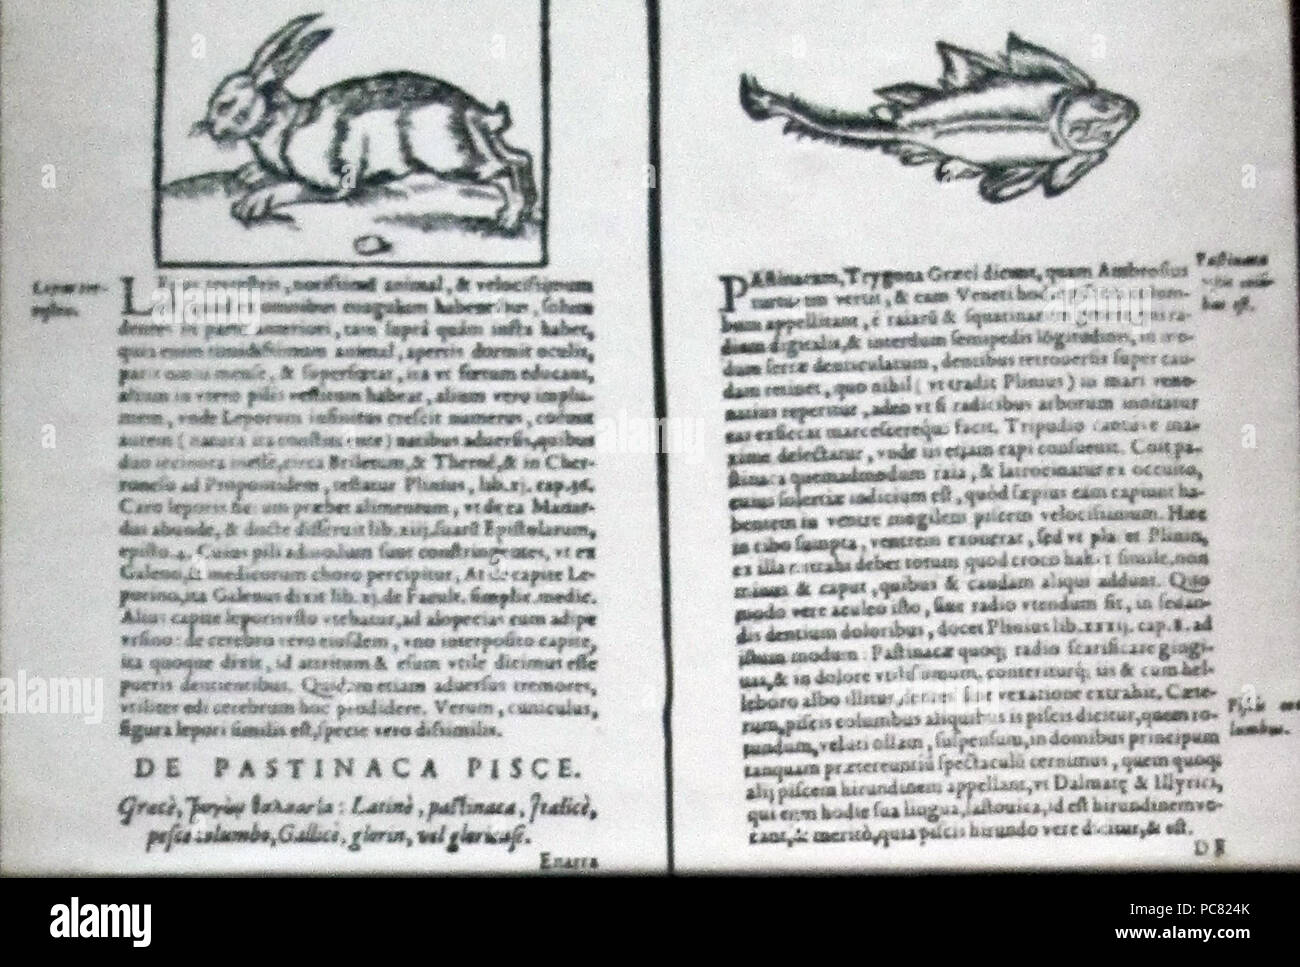 Lepus ter-
LEpus terrestris, notissimum animal, & velocissimum
omnibus coagulum habentibus, solum
dentes in parte anteriori, tam suprà quàm infra habet,
animal, apertis dormit oculis,
& superfœtat, ita vt fœtum educans,
alium in vtero pilis vestitum habeat, alium vero implu-
mem, vnde Leporum infinitus crescit numerus,
(natura ita constituente) natibus aduersis, quibus
duo iecinora inesse, circa Briletum, & Tharne, & in Cher-
roneso ad Propontidem, testatur Plinius, lib. xj. cap. 36.
Caro leporis alimentum, vt de ea Manar-
dus abunde, & docte disseruit lib. xiij. suarū Epistolarum,
episto. 4. Cuius pili admodum sunt constringentes, vt ex
Galeno, & medicorum choro percipitur, At de capite Le-
porino, ita Galenus dixit lib. xj. de Facult. simplic. medic.
Alius capite leporis vsto vtebatur, ad alopecias cum adipe
vrsino: de cerebro vero eiusdem, vno interposito capite,
ita quoque dixit, id attritum & esum vtile dicimus esse
pueris dentientibus. Quidam etiam aduersus tremores,
vtiliter edi cerebrum hoc prodidere. Verum, cuniculus,
figura lepori similis est, specie vero dissimilis.
DE PASTINACA PISCE.
Græcè, : Latinè, pastinaca, Italicè,
pesce columbo, Gallicè, glorin, vel gloricase.
Enarra
PAstinacam, Trygona Græci dicunt, quam Ambrosius
turturem vertit, & eam Veneti hodie pescem colum-
bum appellitant, é raiarū & squatinarum genere,
diam digitalis, & interdum semipedis lōgitudine, in mo-
dum serræ denticulatum, dentibus retrouersis super cau-
dam retinet, quo nihil (vt tradit Plinius) in mari vene-
natius reperitur, adeo vt si radicibus arborum innitatur
eas exsiccat marcescereq; facit. Tripudio cantuve ma-
xime delectatur, vnde iis etiam capi consueuit. Coit pa-
stinaca quemadmodum raia, & latrocinatur ex occulto,
cuius solertiæ indicium est, quòd sæpius eam capiunt ha-
bentem in ventre mugilem piscem velocissimum. Hæc
in cibo sumpta, ventrem exonerat, sed vt placet Plinio,
ex illa extrahi debet totum quod croco habet simile, non
minus & caput, quibus & caudam aliqui addunt. Quo
modo vere aculeo isto, siue radio vtendum sit, in sedan-
dis dentium doloribus, docet Plinius lib. xxxij. cap. 8. ad
istum modum: Pastinacæ quoq; radio scarificare gingi-
uas, & in dolore vtilissimum, conteriturq; is & cum hel-
leboro albo illitus, dentes sine vexatione extrahit. Cæte-
rum, piscis columbus aliquibus is piscis dicitur, quem ro-
tundum, veluti ollam, suspensum, in domibus principum
tanquam prætereuntiū spectaculū cernimus, quem quoq;
alij piscem hirundinem appellant, vt Dalmatę & Illyrici,
qui eum hodie sua lingua, lastouica, id est hirundinem vo-
cant, & meritò, quia piscis hirundo vere dicitur, & est.
DE
Pastinaca
bus est.
Piscis co-
lumbus.
alamy
www.alamy.com
Image ID: PC824K